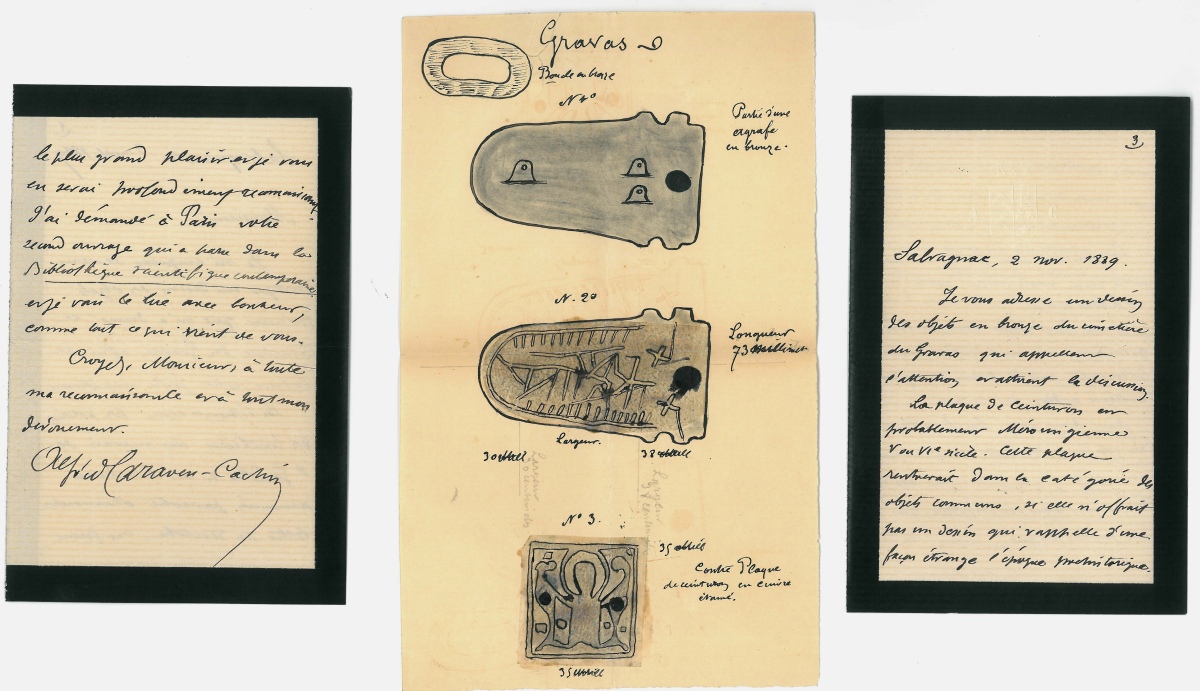 le plus grand plaisir et je vous
en serai profondément reconnaissant
J'ai démandé à Paris votre
second ouvrage qui a paru dans la
Bibliothèque scientifique contemporaine
et je vais le lire avec bonheur,
comme tout ce qui vient de vous.
Croyez, Monsieur, à toute
ma reconnaissance et à tout mon
dévouement.
Alfred Caraven-Cachin
Gravas
Boucle en bronze
N 1º
Partie d'une
agrafe
en bronze.
N. 2º
Longueur
73 millim
Largeur.
30 mill
38 mill
Nº 3.
35 mill
Contre Plaque
de ceinturon en cuivre
étamé.
35 mill
3
Salvagnac, 2 nov. 1889.
Je vous adresse un dessin
des objets en bronze du cimetière
du Gravas qui appellent
l'attention et attirent la discussion.
La plaque de ceinturon est
probablement Mérovingienne
V ou VIe siècle. Cette plaque
rentrerait dans la catégorie des
objets communs, si elle n'offrait
pas un dessin qui rappelle d'une
façon étrange l'époque préhistorique.